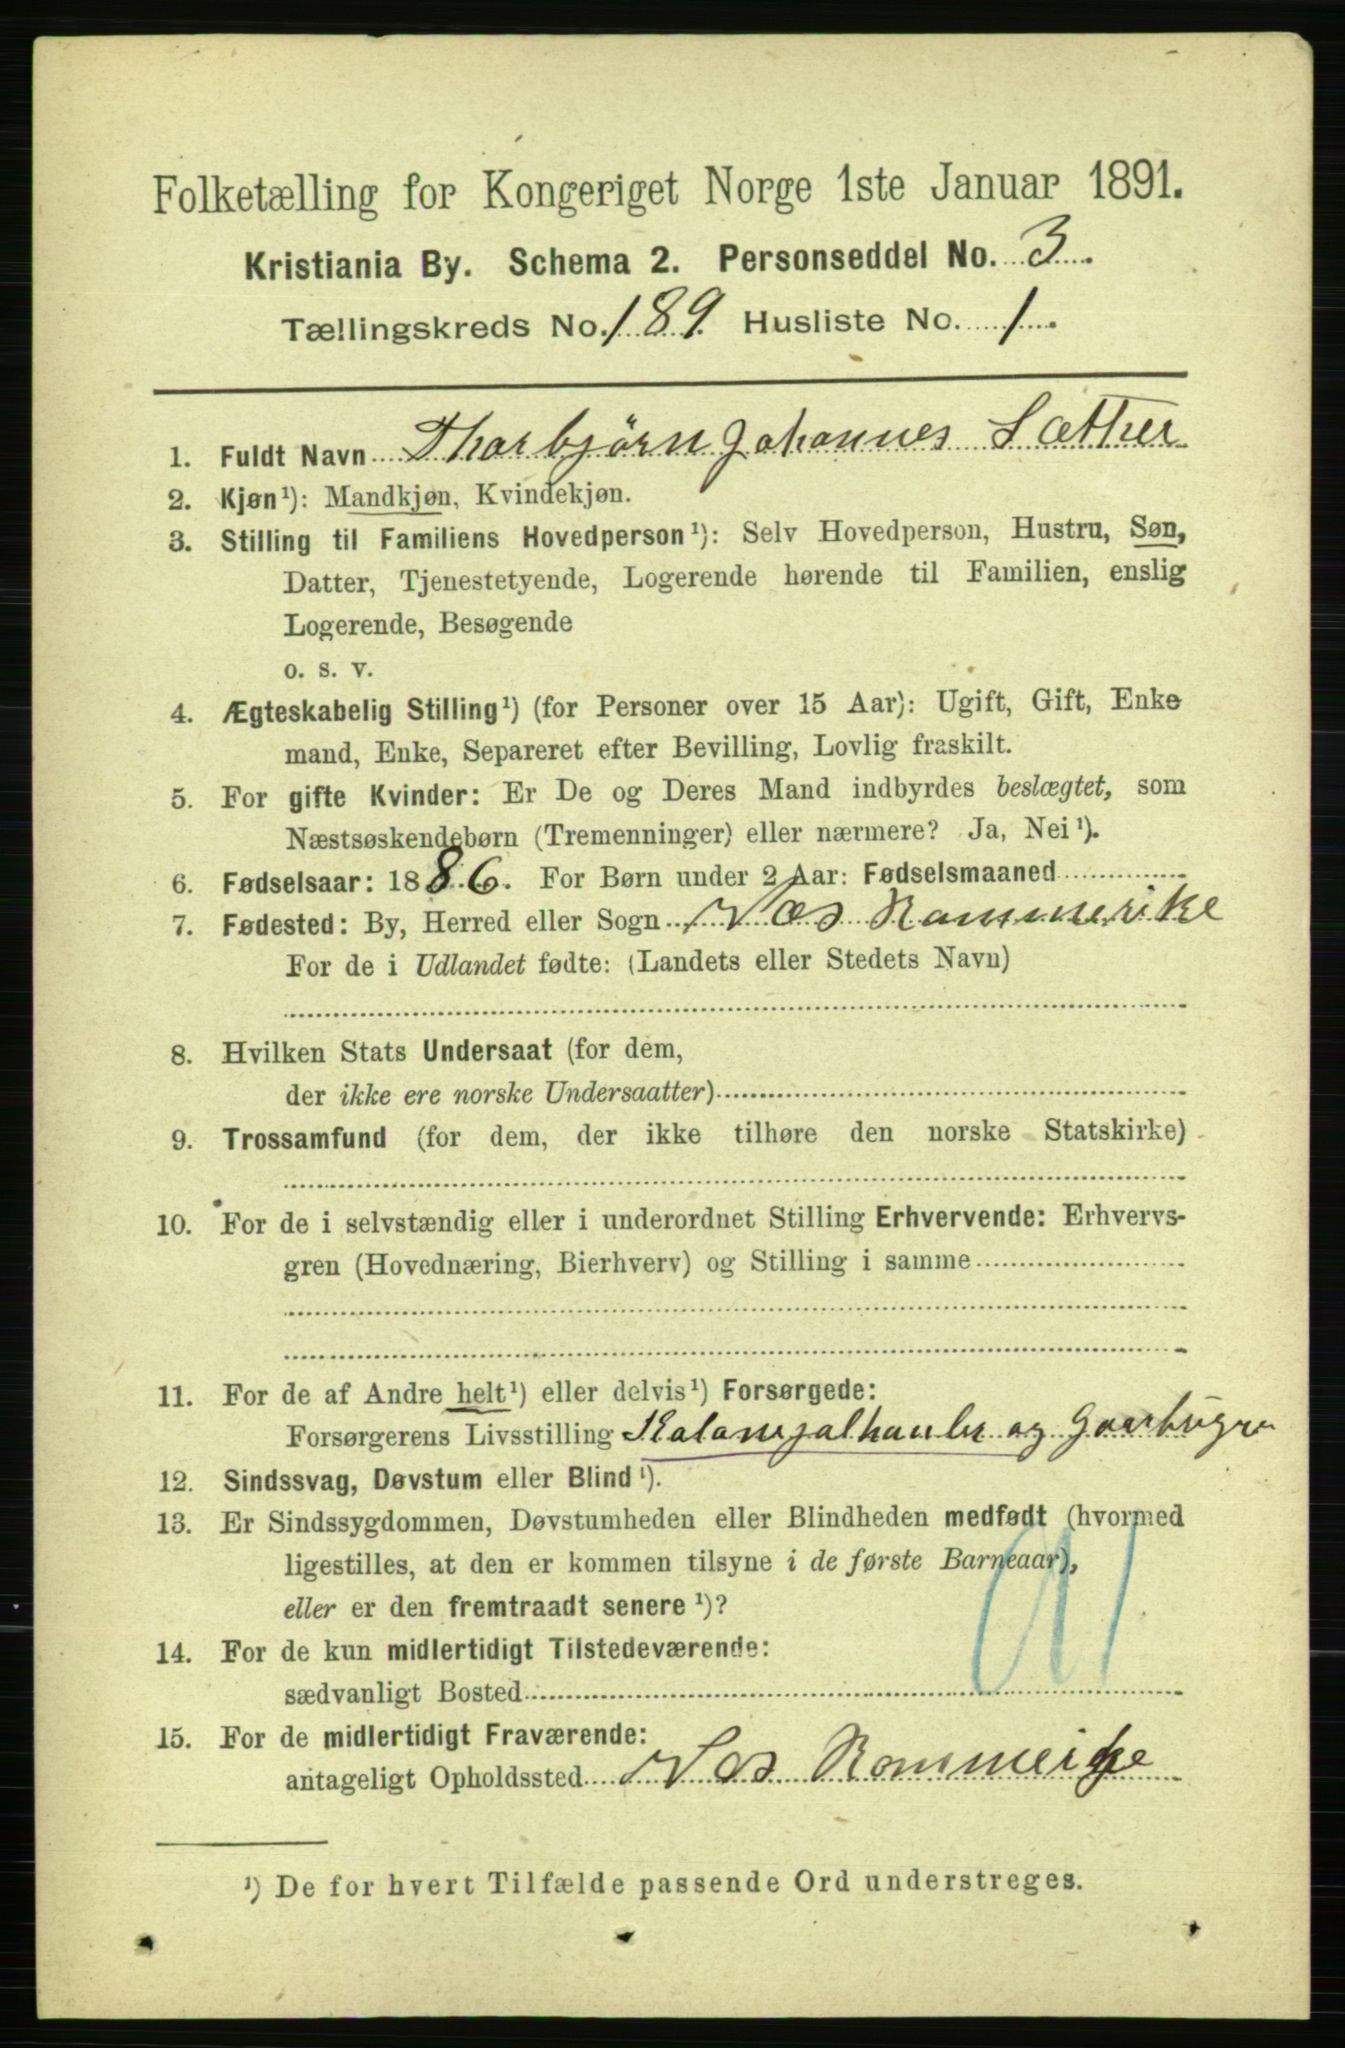 Folketælling for Kongeriget Norge 1ste Januar 1891.
Kristiania By. Schema 2. Personseddel No. 3.
Tællingskreds No. 189. Husliste No. 1.
1. Fuldt Navn Thorbjørn Johannes Sæther
2. Kjøn¹): Mandkjøn, Kvindekjøn.
3. Stilling til Familiens Hovedperson¹): Selv Hovedperson, Hustru, Søn,
Datter, Tjenestetyende, Logerende hørende til Familien, enslig
Logerende, Besøgende
o. s. v.
4. Ægteskabelig Stilling¹) (for Personer over 15 Aar): Ugift, Gift, Enke
mand, Enke, Separeret efter Bevilling, Lovlig fraskilt.
5. For gifte Kvinder: Er De og Deres Mand indbyrdes beslægtet, som
Næstsøskendebørn (Tremenninger) eller nærmere? Ja, Nei¹).
6. Fødselsaar: 1886. For Børn under 2 Aar: Fødselsmaaned
7. Fødested: By, Herred eller Sogn Næs Rommerike
For de i Udlandet fødte: (Landets eller Stedets Navn)
8. Hvilken Stats Undersaat (for dem,
der ikke ere norske Undersaatter)
9. Trossamfund (for dem, der ikke tilhøre den norske Statskirke)
10. For de i selvstændig eller i underordnet Stilling Erhvervende: Erhvervs-
gren (Hovednæring, Bierhverv) og Stilling i samme
11. For de af Andre helt¹) eller delvis¹) Forsørgede:
Forsørgerens Livsstilling og
12. Sindssvag, Døvstum eller Blind¹).
13. Er Sindssygdommen, Døvstumheden eller Blindheden medfødt (hvormed
ligestilles, at den er kommen tilsyne i de første Barneaar),
eller er den fremtraadt senere¹)?
14. For de kun midlertidigt Tilstedeværende:
sædvanligt Bosted
15. For de midlertidigt Fraværende:
antageligt Opholdssted Næs Rommerike
¹) De for hvert Tilfælde passende Ord understreges.